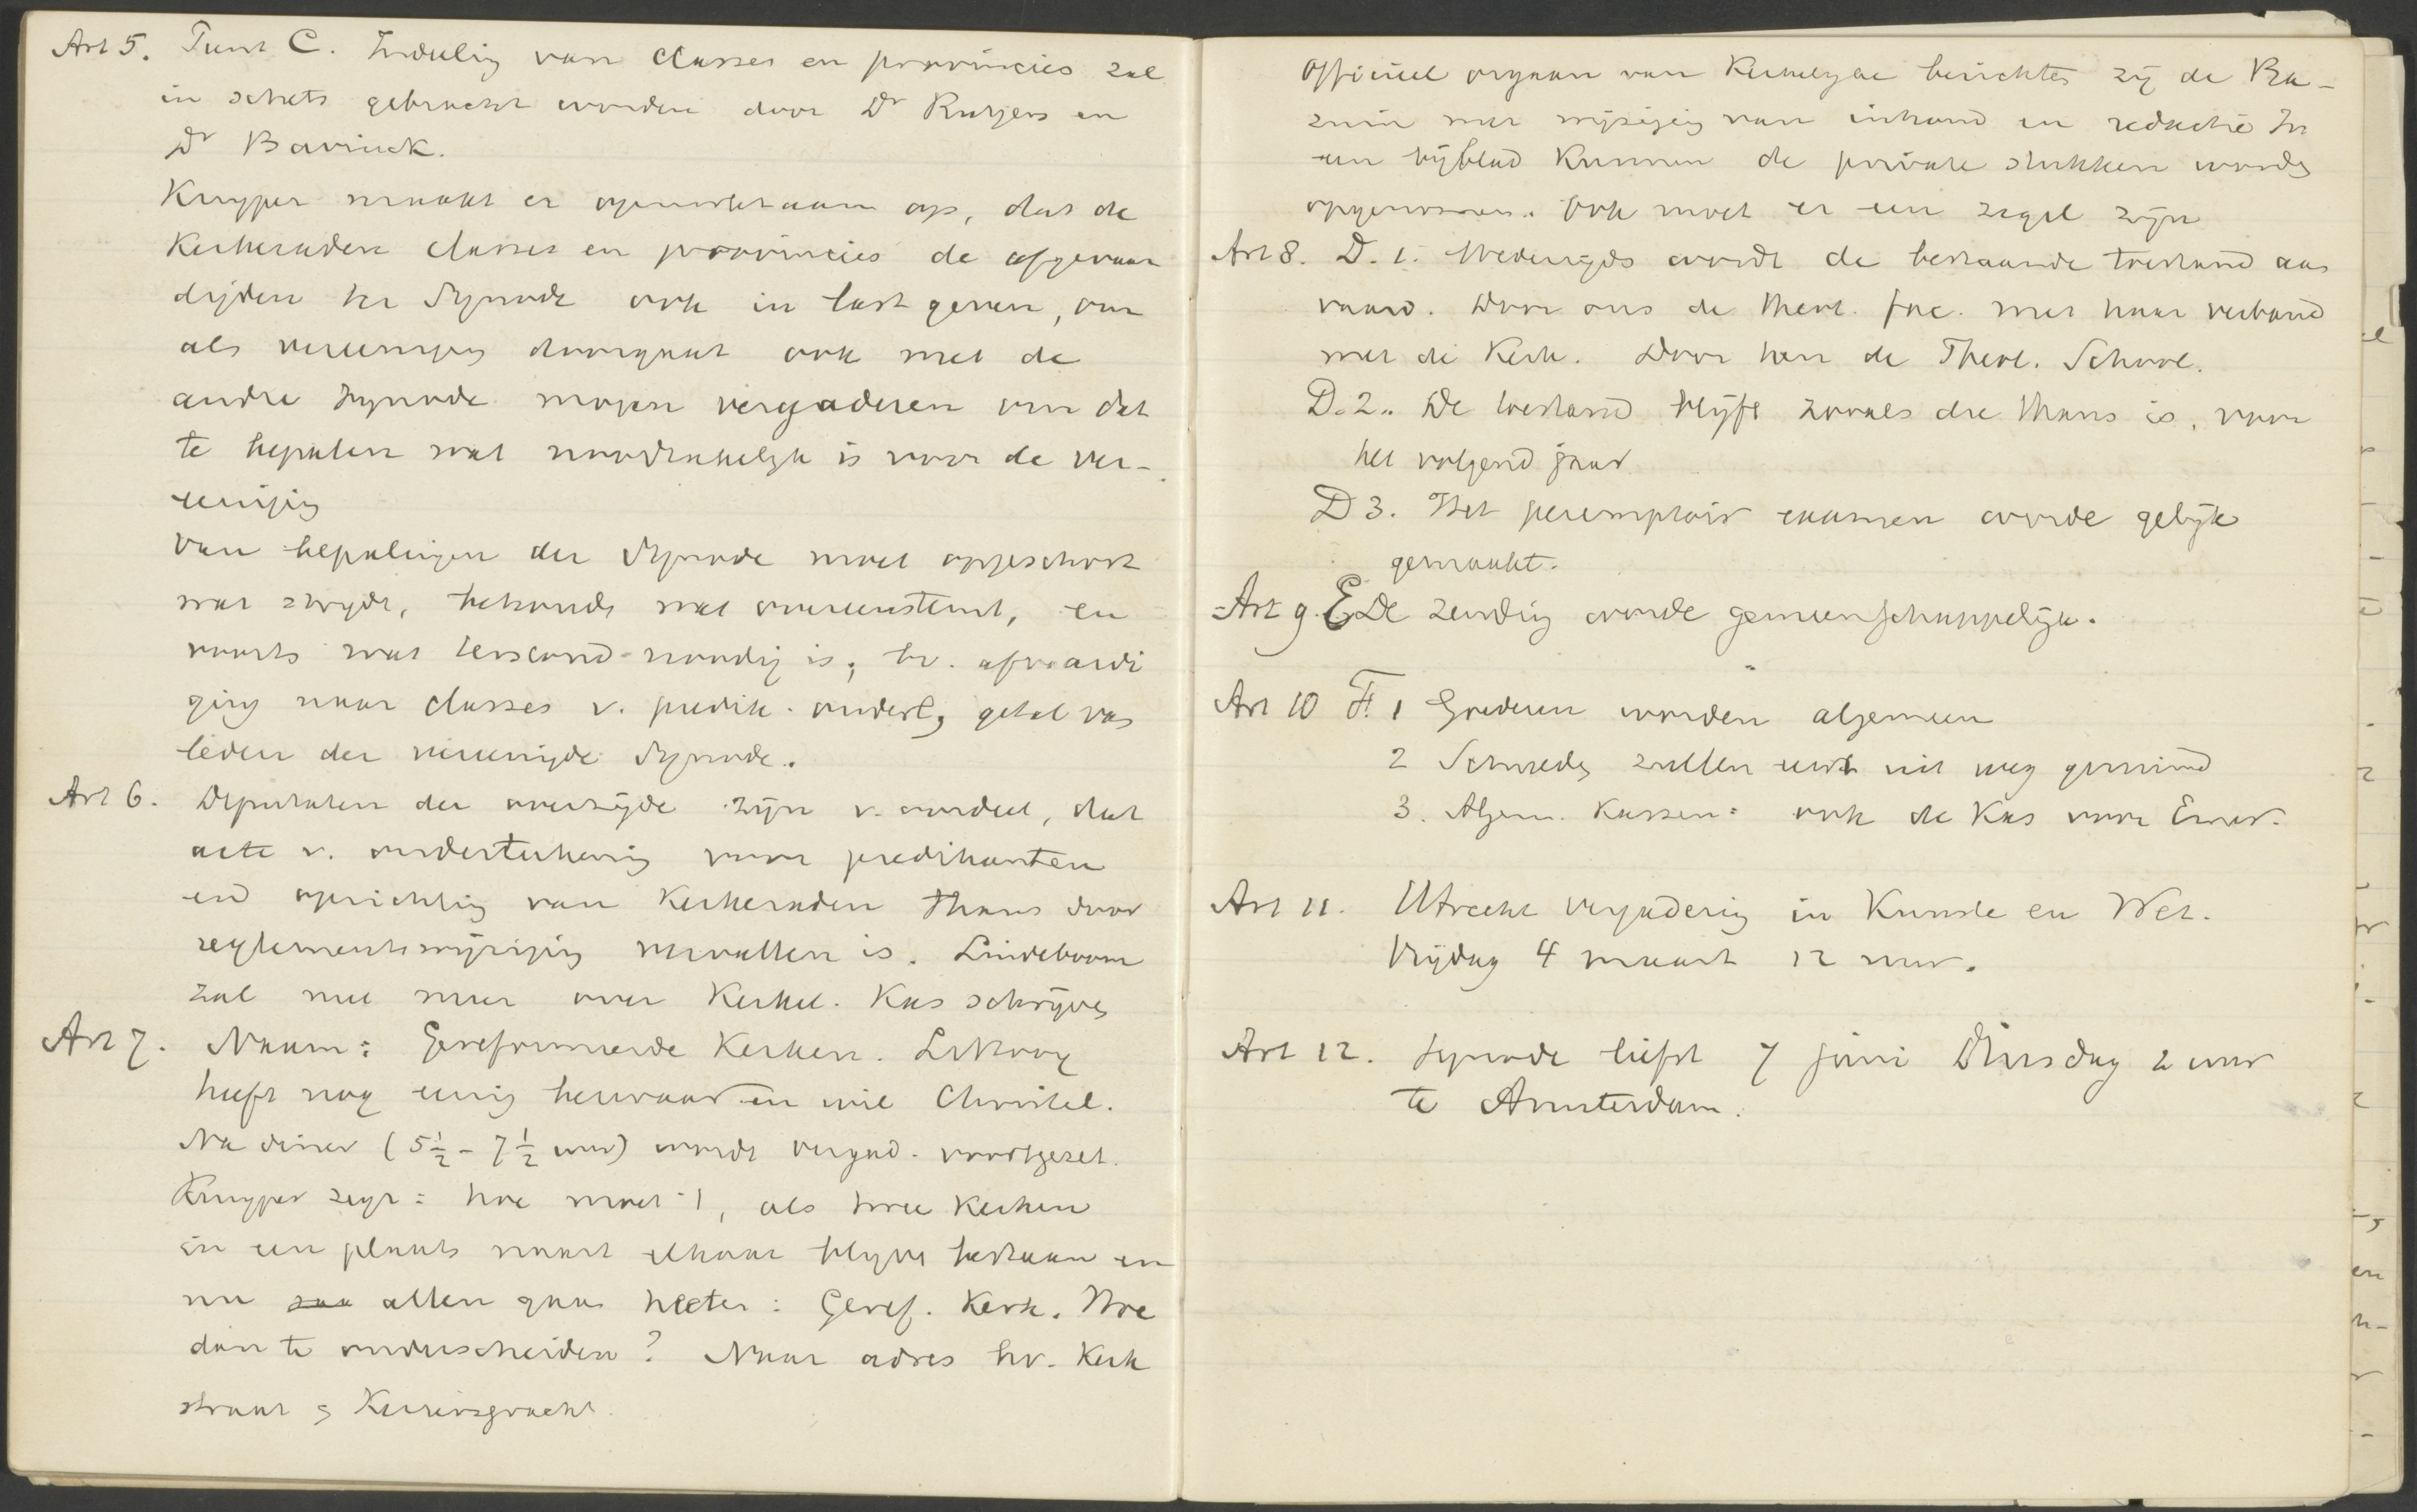 Art 5. Punt C. Indeeling van classes en provincies zal
in schets gebracht worden door Dr Rutgers en
Dr Bavinck.
Kuyper maakt er opmerkzaam op, dat de
Kerkeraden classes en provincies de afgevaar
digden ter Synode ook in last geven, om
als vereeniging doorgaat ook met de
andre Synode mogen vergaderen om dat
te bepalen wat noodzakelijk is voor de ver-
eeniging
Van bepalingen der Synode moet opgeschort
wat strijdt, behoude wat overeenstemt, en
voorts wat terstond noodig is; bv. afvaardi
ging naar classes v. predik. ouderl, getal van
leden der vereenigde Synode.
Art 6. Deputaten der overzijde zijn v. oordeel, dat
acte v. onderteekening voor predikanten
en oprichting van Kerkeraden thans door
reglementswijziging vervallen is. Lindeboom
zal met meer over Kerkel. Kas schrijven
Art 7. Naam: Gereformeerde Kerken.
heeft nog eenig bezwaar en wil Christel.
Na diner (5½ - 7½ uur) wordt vergad. voortgezet.
Kuyper zegt: hoe moet 't, als twee Kerken
in een plaats naast elkaar blijven bestaan en
nu allen gaan heeten: Geref. Kerk. Hoe
dan te onderscheiden? Naar adres bv. Kerk
straat, Keizersgracht.
Officieel orgaan van Kerkelijke berichten zij de Ba-
zuin met wijziging van inhoud en redactie In
een bijblad Kunnen de private stukken worden
opgenomen. Ook moet er een zegel zijn
Art 8. D. 1. Wederzijds wordt de bestaande toestand aan
vaard. Door ons de theol. fac. met haar verband
met de Kerk. Door hen de Theol. School.
D. 2. De toestand blijft zooals die thans is, voor
het volgend jaar
D 3. Het peremptoir examen worde gelijk
gemaakt.
Art 9. E De zending worde gemeenschappelijk.
Art 10 F. 1 Goederen worden algemeen
2 Schulden zullen eerst uit weg geruimd
3. Algem. Kassen: ook de Kas voor Emer.
Art 11. Utrecht vergadering in Kunste en Wet.
Vrijdag 4 maart 12 uur.
Art 12. Synode liefst 7 juni Dinsdag 2 uur
te Amsterdam.